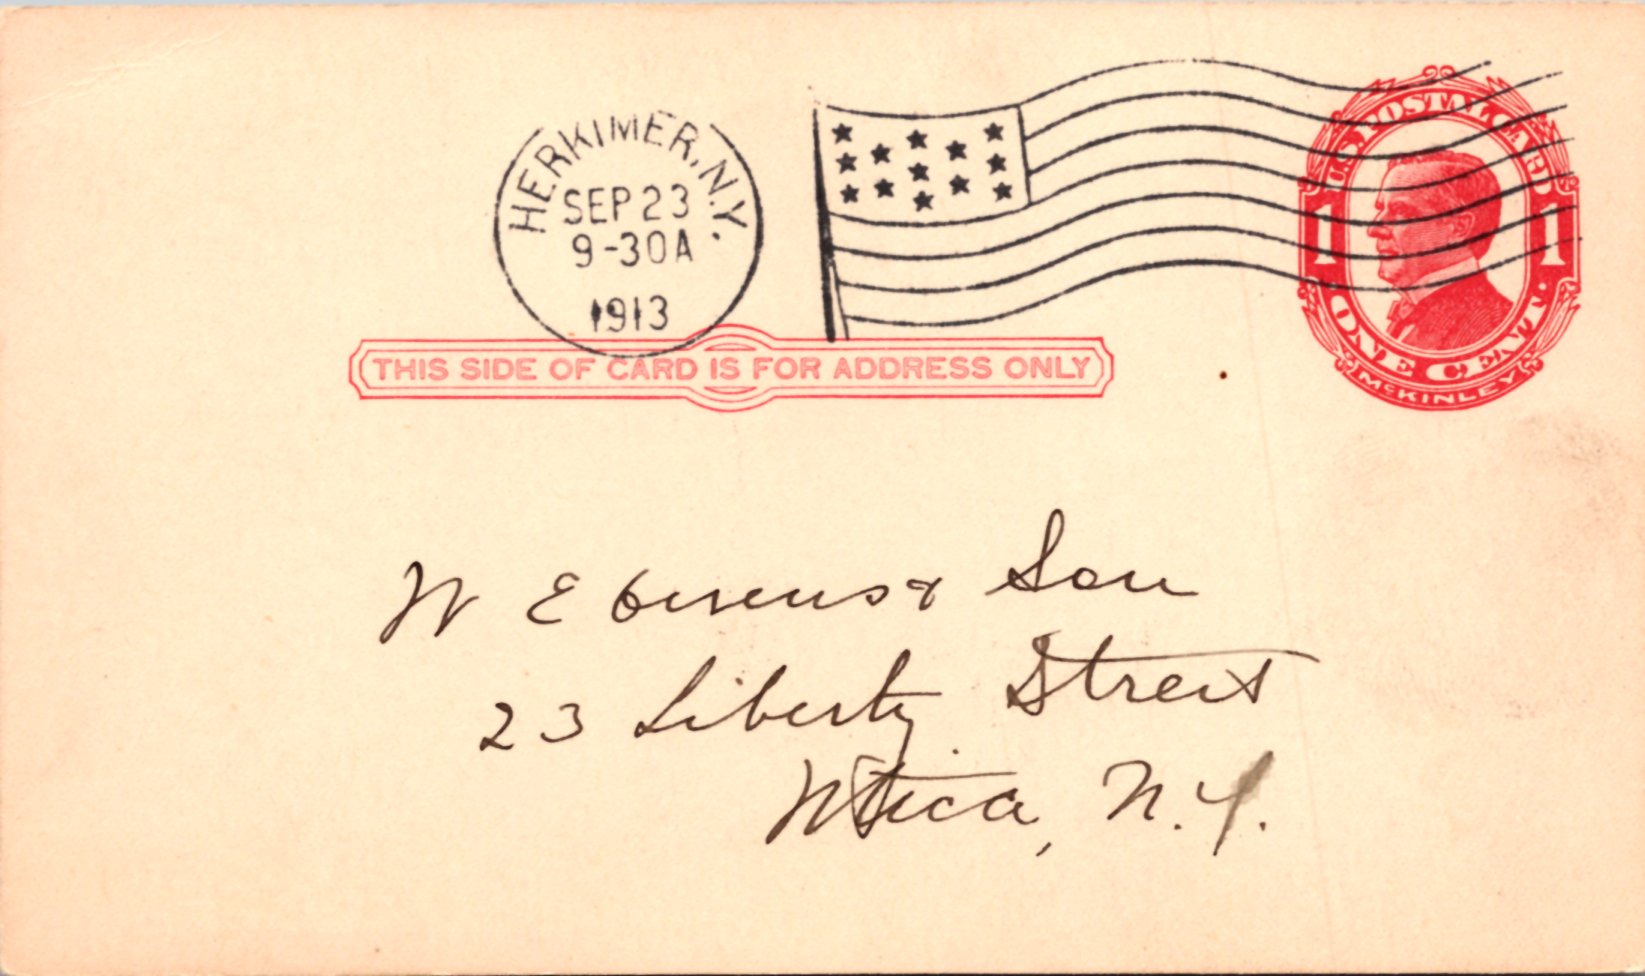 HERKIMER, N.Y.
SEP 23
9-30A
1913
U.S. POSTAL CARD
1 1
ONE CENT.
McKINLEY
THIS SIDE OF CARD IS FOR ADDRESS ONLY
W E & Son
23 Liberty Street
Utica, N.Y.